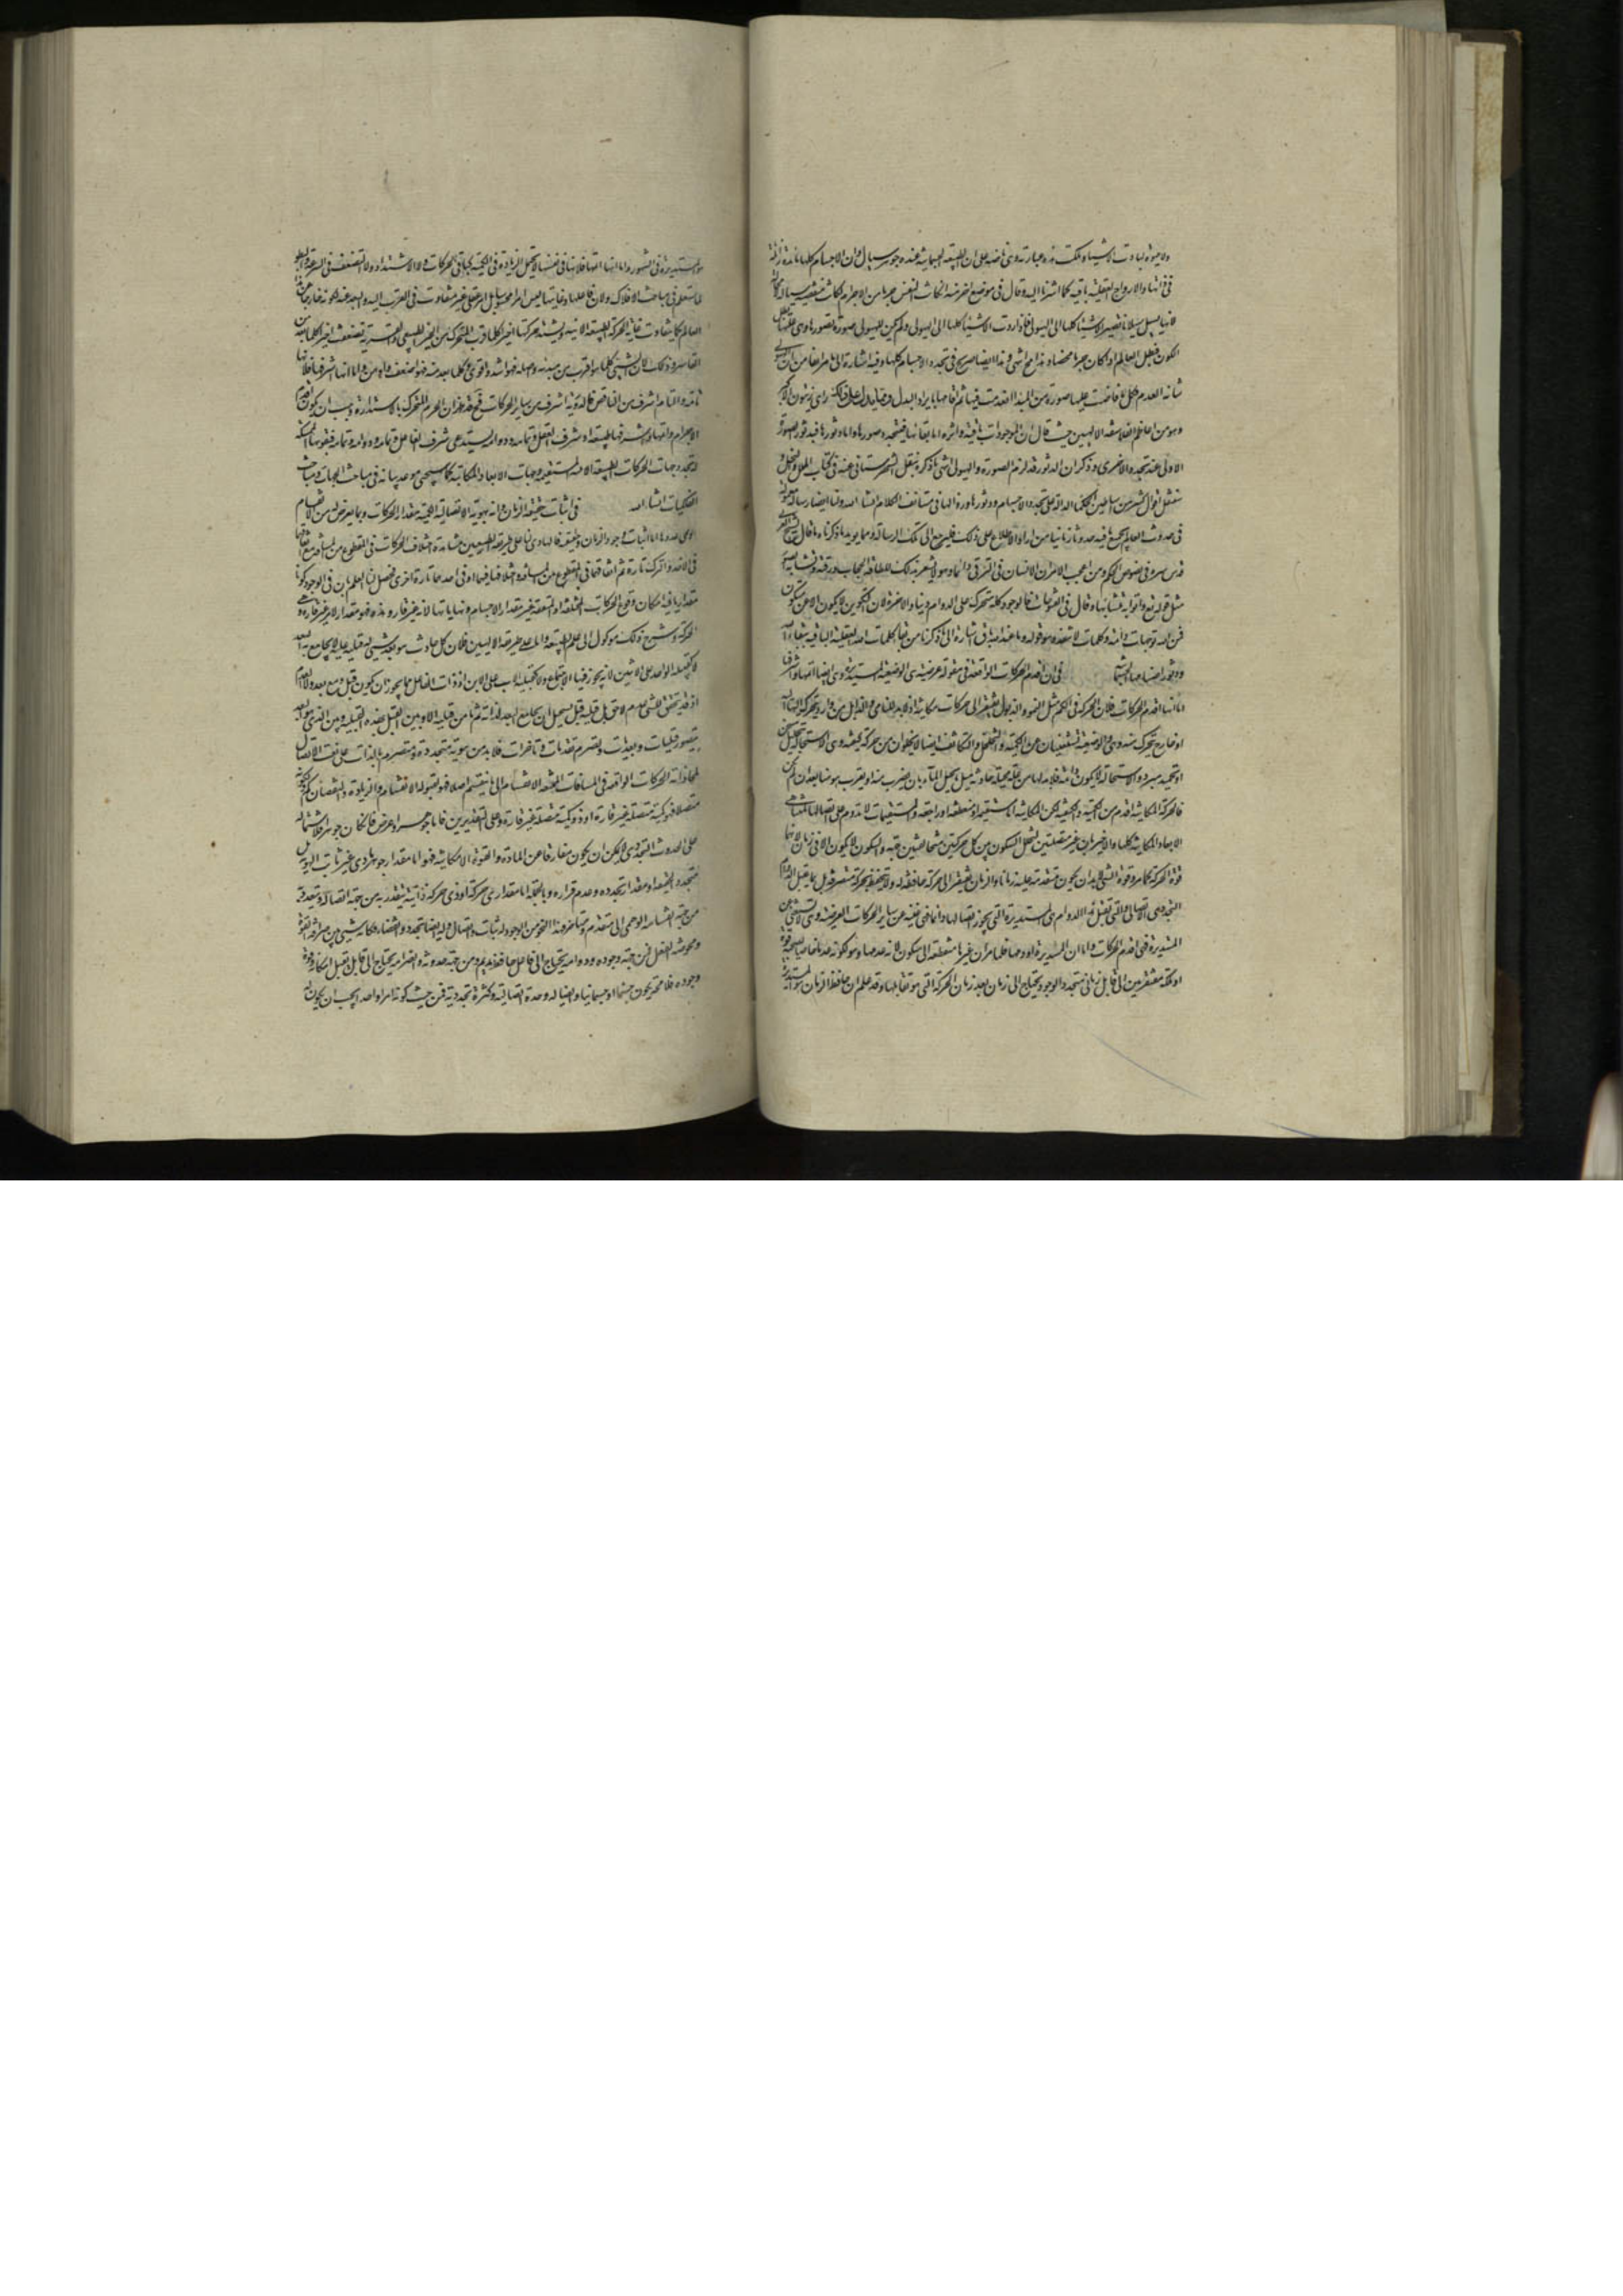 ولا حيوة لبادت الاشياء وهلكت هذه عبارته وهى ناصة على ان الطبيعة الجسمانية عنده جوهر سيال وان الاجسام كلها بائدة زائلة
فى ذاتها والارواح العقلية باقية كما اشرنا اليه وقال فى موضع اخر منه ان كانت النفس جرما من الاجرام لكانت منقضية سيالة لا محالة
لانها تسيل سيلانا تصير الاشياء كلها الى الهيولى فاذا ردت الاشياء كلها الى الهيولى ولم يكن للهيولى صورة تصورها وهى علتها بطل
الكون فبطل العالم اذا كان جرما محضا وهذا مح انتهى وهذا ايضا صريح فى تجدد الاجسام كلها وفيه اشارة الى ما مر سابقا من ان الهيولى
شانه العدم فكل ما فاضت عليها صورة من المبدا انعدمت فيها ثم اقامها بايراد البدل ومما يدل على ذلك راى زينون الاكبر
وهو من اعاظم الفلاسفة الالهيين حيث قال ان الموجودات باقية داثرة اما بقائها فبتجدد صورها واما دثورها فبدثور الصورة
الاولى عند تجدد الاخرى وذكر ان الدثور قد لزم الصورة والهيولى انتهى ما ذكره بنقل الشهرستانى عنه فى كتاب الملل والنحل و
سننقل اقوال كثير من اساطين الحكماء الدالة على تجدد الاجسام ودثورها وزوالها فى مستانف الكلام انشاء الله ولنا ايضا رسالة معمولة
فى حدوث العالم بجميع ما فيه حدوثا زمانيا من اراد الاطلاع على ذلك فليرجع الى تلك الرسالة ومما يؤيد ما ذكرناه ما قال الشيخ العربى
قدس سره فى فصوص الحكم ومن اعجب الامر ان الانسان فى الترقى دائما وهو لا يشعر بذلك للطافة الحجاب ورقته وتشابه الصور
مثل قوله تع واتوا به متشابها وقال فى الفتوحات فالوجود كله متحرك على الدوام دنيا واخرة لان التكوين لا يكون الا عن مكون
فمن الله توجهات دائمة وكلمات لا تنفد وهو قوله وما عند الله باق اشارة الى ما ذكرنا من بقاء كلمات الله العقلية الباقية ببقاء الله
ودثور اصنامها الجسمانية فى ان اقدم الحركات الواقعة فى مقولة عرضية هى الوضعية المستديرة وهى ايضا اتمها واشرفها
اما انها اقدم الحركات فلان الحركة فى الكم مثل النمو والذبول يفتقر الى حركات مكانية اذ لا بد للنامى والذابل من وارد يتحرك اليه
او خارج يتحرك منه وهى والوضعية تستغنيان عن الكمية والتخلخل والتكاثف ايضا لا يخلوان من حركة كيفية وهى الاستحالة بتحليل مسخن
او تجميد مبرد والاستحالة لا يكون دائمة فلا بد لها من علة محيلة حادثة مثل نار تحيل الماء بان يقرب منه او يقرب هو منها بعد ان لم يكن
فالحركة المكانية اقدم من الكمية والكيفية لكن المكانية اما مستقيمة او منعطفة او راجعة والمستقيمات لا تدوم على اتصالها لتناهى
الابعاد المكانية كلها والاخيران غير متصلتين لتخلل السكون بين كل حركتين متخالفتين جهة والسكون لا يكون الا فى زمان لانها
قوة الحركة كما مر وقوة الشئ لا بد ان يكون متقدمة عليه زمانا والزمان يفتقر الى حركة حافظة له ولا تنحفظ بحركة منصرمة بل بما يقبل الدوام
التجددى الاتصالى والتى تقبل هذا الدوام هى المستديرة التى يجوز اتصالها دائما فهى غنية عن سائر الحركات العرضية وهى لا تستغنى عن
المستديرة فهى اقدم الحركات واما ان المستديرة واحدة فلما مر ان غيرها منقطعة الى سكون لانه ضدها وهو لكونه عدما خاصا يصحبه قوة
او ملكة مفتقر الى قابل زمانى متجدد الوجود يحتاج الى زمان بعد زمان الحركة التى هو تقابلها وقد علم ان حافظ الزمان هو المستديرة
والمستديرة فى الشهور واما انها اتمها فلانها فى نفسها لا تحتمل الزيادة فى الكمية كباقى الحركات ولا الاشتداد ولا التضعف فى السرعة والبطؤ
لما ستعلم فى مباحث الافلاك ولان فاعلها وغايتها ليس امرا جسمانيا بل امر عقلى غير متفاوت فى القرب اليه والبعد عنه لكونه خارجا عن هذا
العالم كما يتفاوت غاية الحركة الطبيعية الاينية ويشتد حركتها اخيرا كلما قرب المتحرك من الحيز الطبيعى والقسرية تضعف اخيرا كلما بعد من
القاسر وذلك لان الشئ كلما هو اقرب من مبدئه واصله فهو اشد واقوى وكلما بعد منه فهو اضعف واوهن واما انها اشرف فلانها
تامة والتام اشرف من الناقص فالدورية اشرف من سائر الحركات فح قد ظهر ان الجرم المتحرك بالاستدارة وجب ان يكون اقدم
الاجرام واتمها واشرفها طبيعة وشرف الفعل وتمامه ودوامه يستدعى شرف الفاعل وتمامه ودوامه وتمامه فبقوته الممسكة
لتحدد جهات الحركات الطبيعية الاينية المستقيمة وجهات الابعاد المكانية كما سيجئ موعد بيانه فى مباحث الجهات ومباحث
الفلكيات انشاء الله فى اثبات حقيقة الزمان وانه بهويته الاتصالية الكمية مقدار الحركات وبما يعرض له من الانقسام
الوهمى عددها اما اثبات وجود الزمان وحقيقته فالهادى لنا على طريقة الطبيعيين مشاهدة اختلاف الحركات فى المقطوع من المسافة مع اتفاقها
فى الاخذ والترك تارة ثم اتفاقها فى المقطوع من المسافة واختلافها فيهما او فى احدهما تارة اخرى فحصل لنا العلم بان فى الوجود كونا
مقداريا فيه امكان وقوع الحركات المختلفة او المتفقة غير مقدار الاجسام ونهاياتها لانه غير قار وهذه قارة فهو مقدار لامر غير قار وهو
الحركة وشرح ذلك موكول الى علم الطبيعة واما على طريقة الالهيين فلان كل حادث هو بعد شئ له قبلية عليه لا يجامع به البعد
لا كقبلية الواحد على الاثنين لانه يجوز فيها الاجتماع ولا كقبلية الاب على الابن او ذات الفاعل مما يجوز ان يكون قبل ومع وبعد ولا العدم
اذ قد يتحقق للشئ عدم لاحق بل قبلية قبل يستحيل ان يجامع البعد لذاته ثم ما من قبلية الا وبين القبل بهذه القبلية وبين الذى هو البعد
يتصور قبليات وبعديات وتصرم تقدمات وتاخرات فلا بد من هوية متجددة متصرمة بالذات على نعت الاتصال
لمحاذاته الحركات الواقعة فى المسافات الممتنعة الانقسام الى ما ينقسم اصلا فهو لقبوله الانقسام والزيادة والنقصان كم ولكونه
متصلا فهو كمية متصلة غير قارة او ذو كمية متصلة غير قارة وعلى التقديرين فاما جوهر او عرض فان كان جوهرا فلاشتماله
على الحدوث التجددى لا يمكن ان يكون مفارقا عن المادة والقوة الامكانية فهو اما مقدار جوهر مادى غير ثابت الهوية بل
متجدد الحقيقة او مقدار تجدده وعدم قراره وبالجملة اما مقدار حركة او ذى حركة ذاتية يتقدر به من جهة اتصاله ويتعدد به
من جهة انقسامه الوهمى الى متقدم ومتاخر فهذا النحو من الوجود له ثبات واتصال وله ايضا تجدد وانقضاء فكانه شئ بين صرافة القوة
ومحوضة الفعل فمن جهة وجوده ودوامه يحتاج الى فاعل حافظ يديمه ومن جهة حدوثه وانصرامه يحتاج الى قابل يقبل امكانه وقوة
وجوده فلا محة يكون جسما او جسمانيا وايضا له وحدة اتصالية وكثرة تجددية فمن حيث كونه امرا واحدا يجب ان يكون له